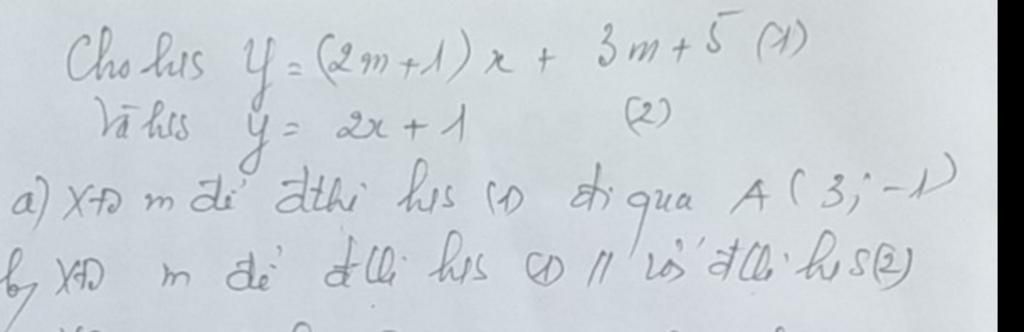 Cho hs y = (2m+1)x + 3m+5 (1)
Và hs y = 2x+1 (2)
a) XĐ m để đthị hs (1) đi qua A(3;-1)
b, XĐ m để đthị hs (1) // với đthị hs(2)